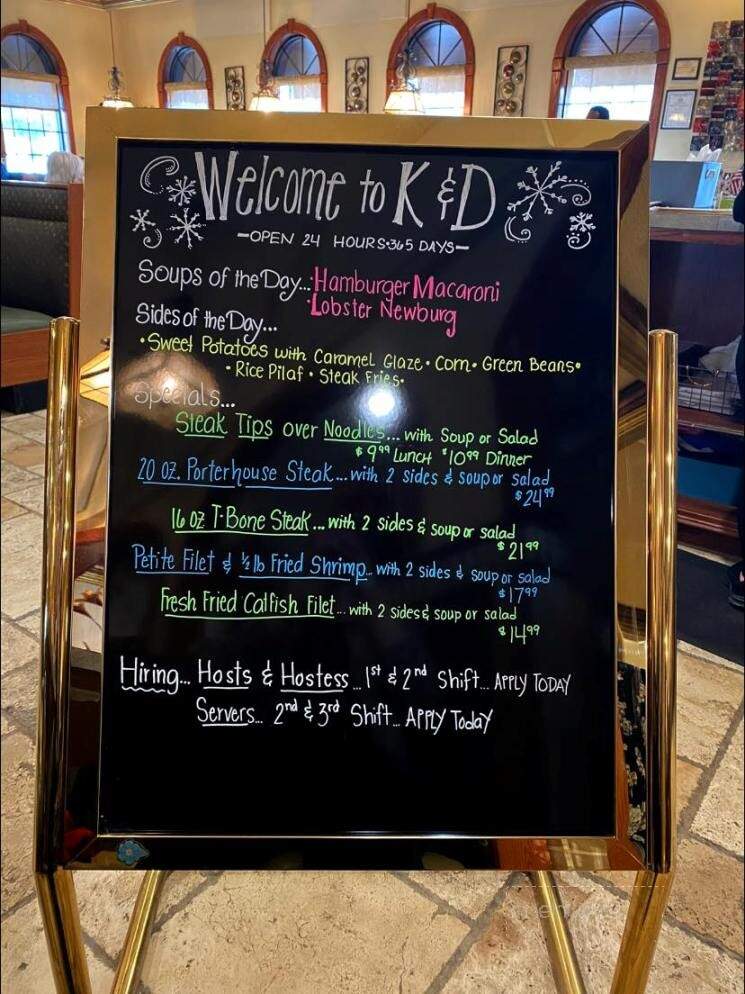 Welcome to K & D
-OPEN 24 HOURS•365 DAYS-
Soups of the Day...•Hamburger Macaroni
•Lobster Newburg
Sides of the Day...
•Sweet Potatoes with Caramel Glaze•Corn•Green Beans•
•Rice Pilaf•Steak Fries•
Specials...
Steak Tips over Noodles... with Soup or Salad
$9.99 Lunch $10.99 Dinner
20 oz. Porterhouse Steak... with 2 sides & soup or salad
$24.99
16 oz T-Bone Steak... with 2 sides & soup or salad
$21.99
Petite Filet & 1/2 lb Fried Shrimp.. with 2 sides & soup or salad
$17.99
Fresh Fried Catfish Filet... with 2 sides & soup or salad
$14.99
Hiring... Hosts & Hostess... 1st & 2nd Shift... APPLY TODAY
Servers... 2nd & 3rd Shift... APPLY Today